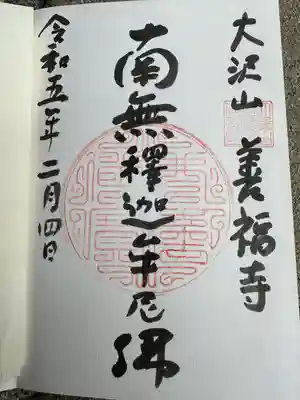 大沢山 善福寺
南無釋迦牟尼佛
令和五年二月四日